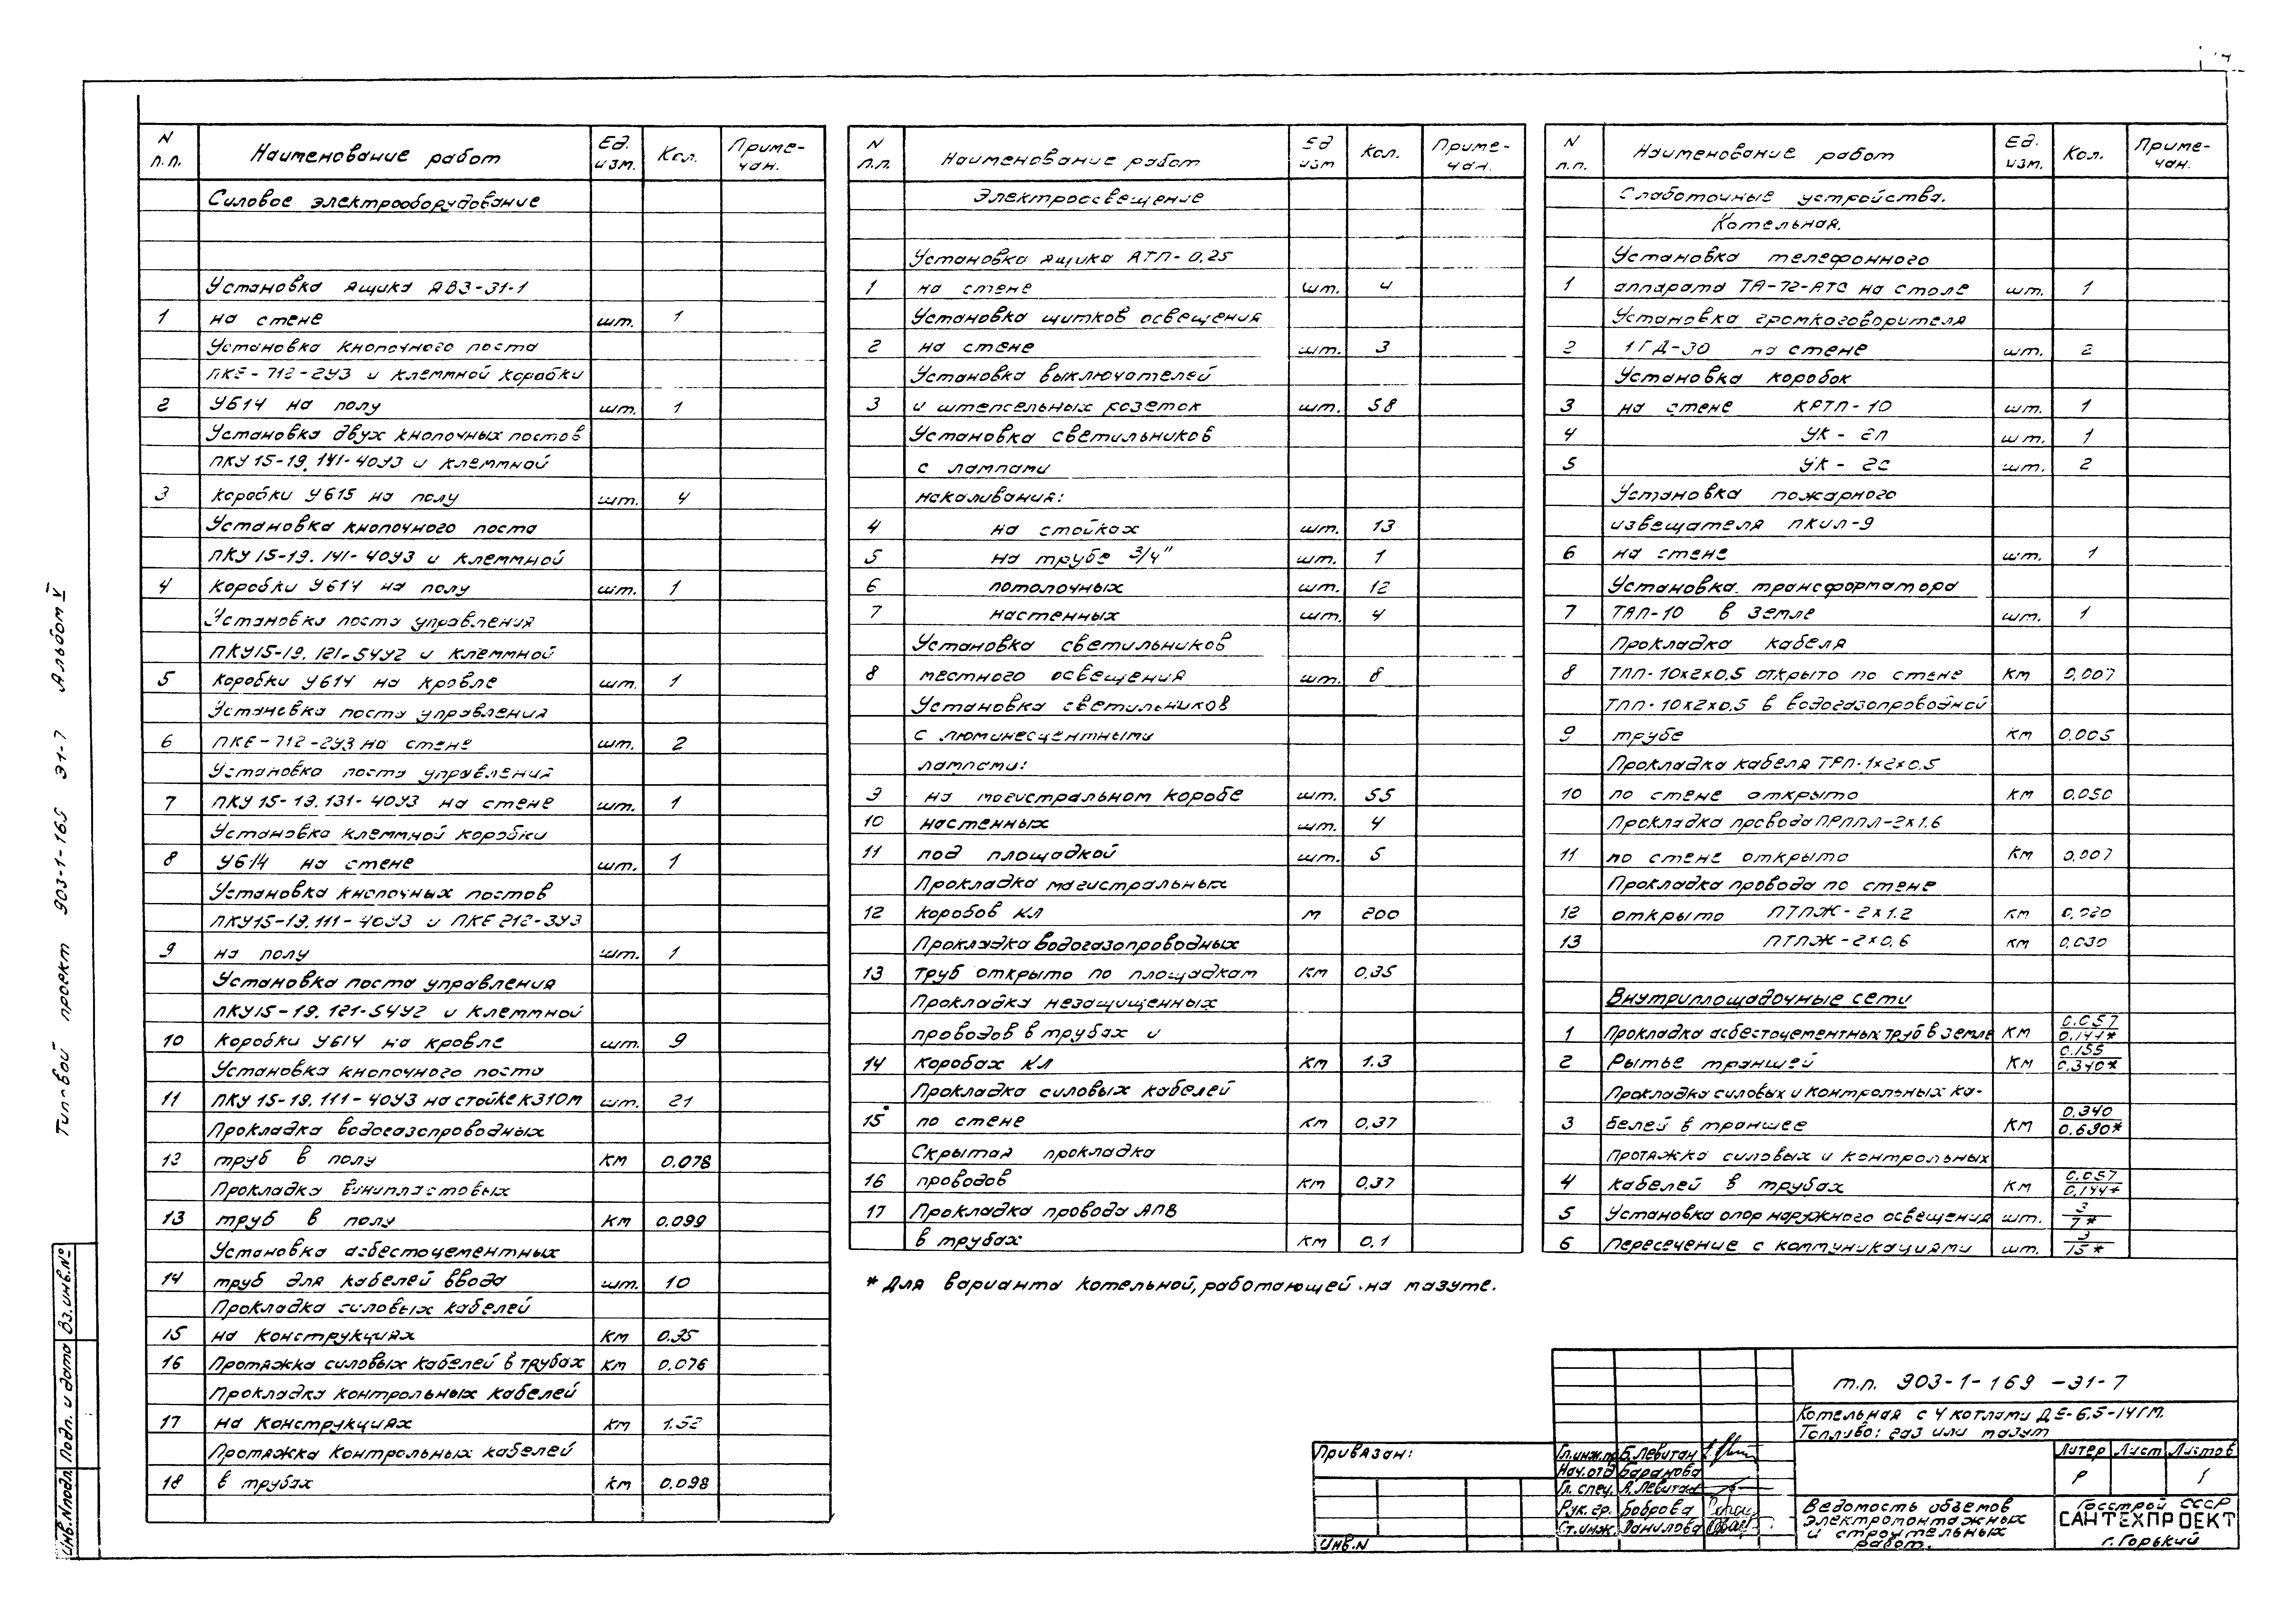 Типовой проект 903-1-165 Э1-7 Альбом V
N п.п. Наименование работ Ед. изм. Кол. Приме-чан.
Силовое электрооборудование
Установка ящика ЯВЗ-31-1
1 на стене шт. 1
Установка кнопочного поста
ПКЕ-712-2У3 и клеммной коробки
2 У614 на полу шт. 1
Установка двух кнопочных постов
ПКУ15-19.141-40У3 и клеммной
3 коробки У615 на полу шт. 4
Установка кнопочного поста
ПКУ15-19.141-40У3 и клеммной
4 коробки У614 на полу шт. 1
Установка поста управления
ПКУ15-19.121-54У2 и клеммной
5 коробки У614 на кровле шт. 1
Установка поста управления
6 ПКЕ-712-2У3 на стене шт. 2
Установка поста управления
7 ПКУ15-19.131-40У3 на стене шт. 1
Установка клеммной коробки
8 У614 на стене шт. 1
Установка кнопочных постов
ПКУ15-19.111-40У3 и ПКЕ 212-3У3
9 на полу шт. 1
Установка поста управления
ПКУ15-19.121-54У2 и клеммной
10 коробки У614 на кровле шт. 9
Установка кнопочного поста
11 ПКУ15-19.111-40У3 на стойке К310м шт. 21
Прокладка водогазопроводных
12 труб в полу км 0.078
Прокладка винипластовых
13 труб в полу км 0.099
Установка асбестоцементных
14 труб для кабелей ввода шт. 10
Прокладка силовых кабелей
15 на конструкциях км 0.35
16 Протяжка силовых кабелей в трубах км 0.076
Прокладка контрольных кабелей
17 на конструкциях км 1.52
Протяжка контрольных кабелей
18 в трубах км 0.098
N п.п. Наименование работ Ед изм Кол. Приме-чан.
Электроосвещение
Установка ящика ЯТП-0,25
1 на стене шт. 4
Установка щитков освещения
2 на стене шт. 3
Установка выключателей
3 и штепсельных розеток шт. 58
Установка светильников
с лампами
накаливания:
4 на стойках шт. 13
5 на трубе 3/4" шт. 1
6 потолочных шт. 12
7 настенных шт. 4
Установка светильников
8 местного освещения шт. 8
Установка светильников
с люминесцентными
лампами:
9 на магистральном коробе шт. 55
10 настенных шт. 4
11 под площадкой шт. 5
Прокладка магистральных
12 коробов КЛ м 200
Прокладка водогазопроводных
13 труб открыто по площадкам км 0.35
Прокладка незащищенных
проводов в трубах и
14 коробах КЛ км 1.3
Прокладка силовых кабелей
15 по стене км 0,37
Скрытая прокладка
16 проводов км 0.37
17 Прокладка провода АПВ
в трубах км 0.1
* Для варианта котельной, работающей на мазуте.
N п.п. Наименование работ Ед. изм. Кол. Приме-чан.
Слаботочные устройства.
Котельная.
Установка телефонного
1 аппарата ТА-72-АТС на столе шт. 1
Установка громкоговорителя
2 1ГД-30 на стене шт. 2
Установка коробок
3 на стене КРТП-10 шт. 1
4 УК-2П шт. 1
5 УК-2С шт. 2
Установка пожарного
извещателя ПКИЛ-9
6 на стене шт. 1
Установка трансформатора
7 ТАП-10 в земле шт. 1
Прокладка кабеля
8 ТПП-10х2х0,5 открыто по стене км 0,007
ТПП-10х2х0,5 в водогазопроводной
9 трубе км 0.005
Прокладка кабеля ТРП-1х2х0.5
10 по стене открыто км 0.050
Прокладка провода ПРППЛ-2х1.6
11 по стене открыто км 0,007
Прокладка провода по стене
12 открыто ПТПЖ-2х1.2 км 0.020
13 ПТПЖ-2х0,6 км 0,030
Внутриплощадочные сети
1 Прокладка асбестоцементных труб в земле км 0.057 0.144*
2 Рытье траншей км 0.155 0.340*
Прокладка силовых и контрольных ка-
3 белей в траншее км 0.340 0.690*
Протяжка силовых и контрольных
4 кабелей в трубах км 0.057 0.144*
5 Установка опор наружного освещения шт. 3 7*
6 Пересечение с коммуникациями шт. 3 15*
т.п. 903-1-169 -Э1-7
Котельная с 4 котлами ДЕ-6,5-14ГМ.
Топливо: газ или мазут
Литер Лист Листов
Р 1
Ведомость объемов
электромонтажных
и строительных
работ.
Госстрой СССР
САНТЕХПРОЕКТ
г. Горький
Гл.инж.пр Б.Левитан
Нач.отд Баранова
Гл. спец. Я.Левитан
Рук. гр. Боброва
Ст.инж. Данилова
Привязан:
Инв.N
Инв.Nподл. Подп. и дата Вз.инв.№